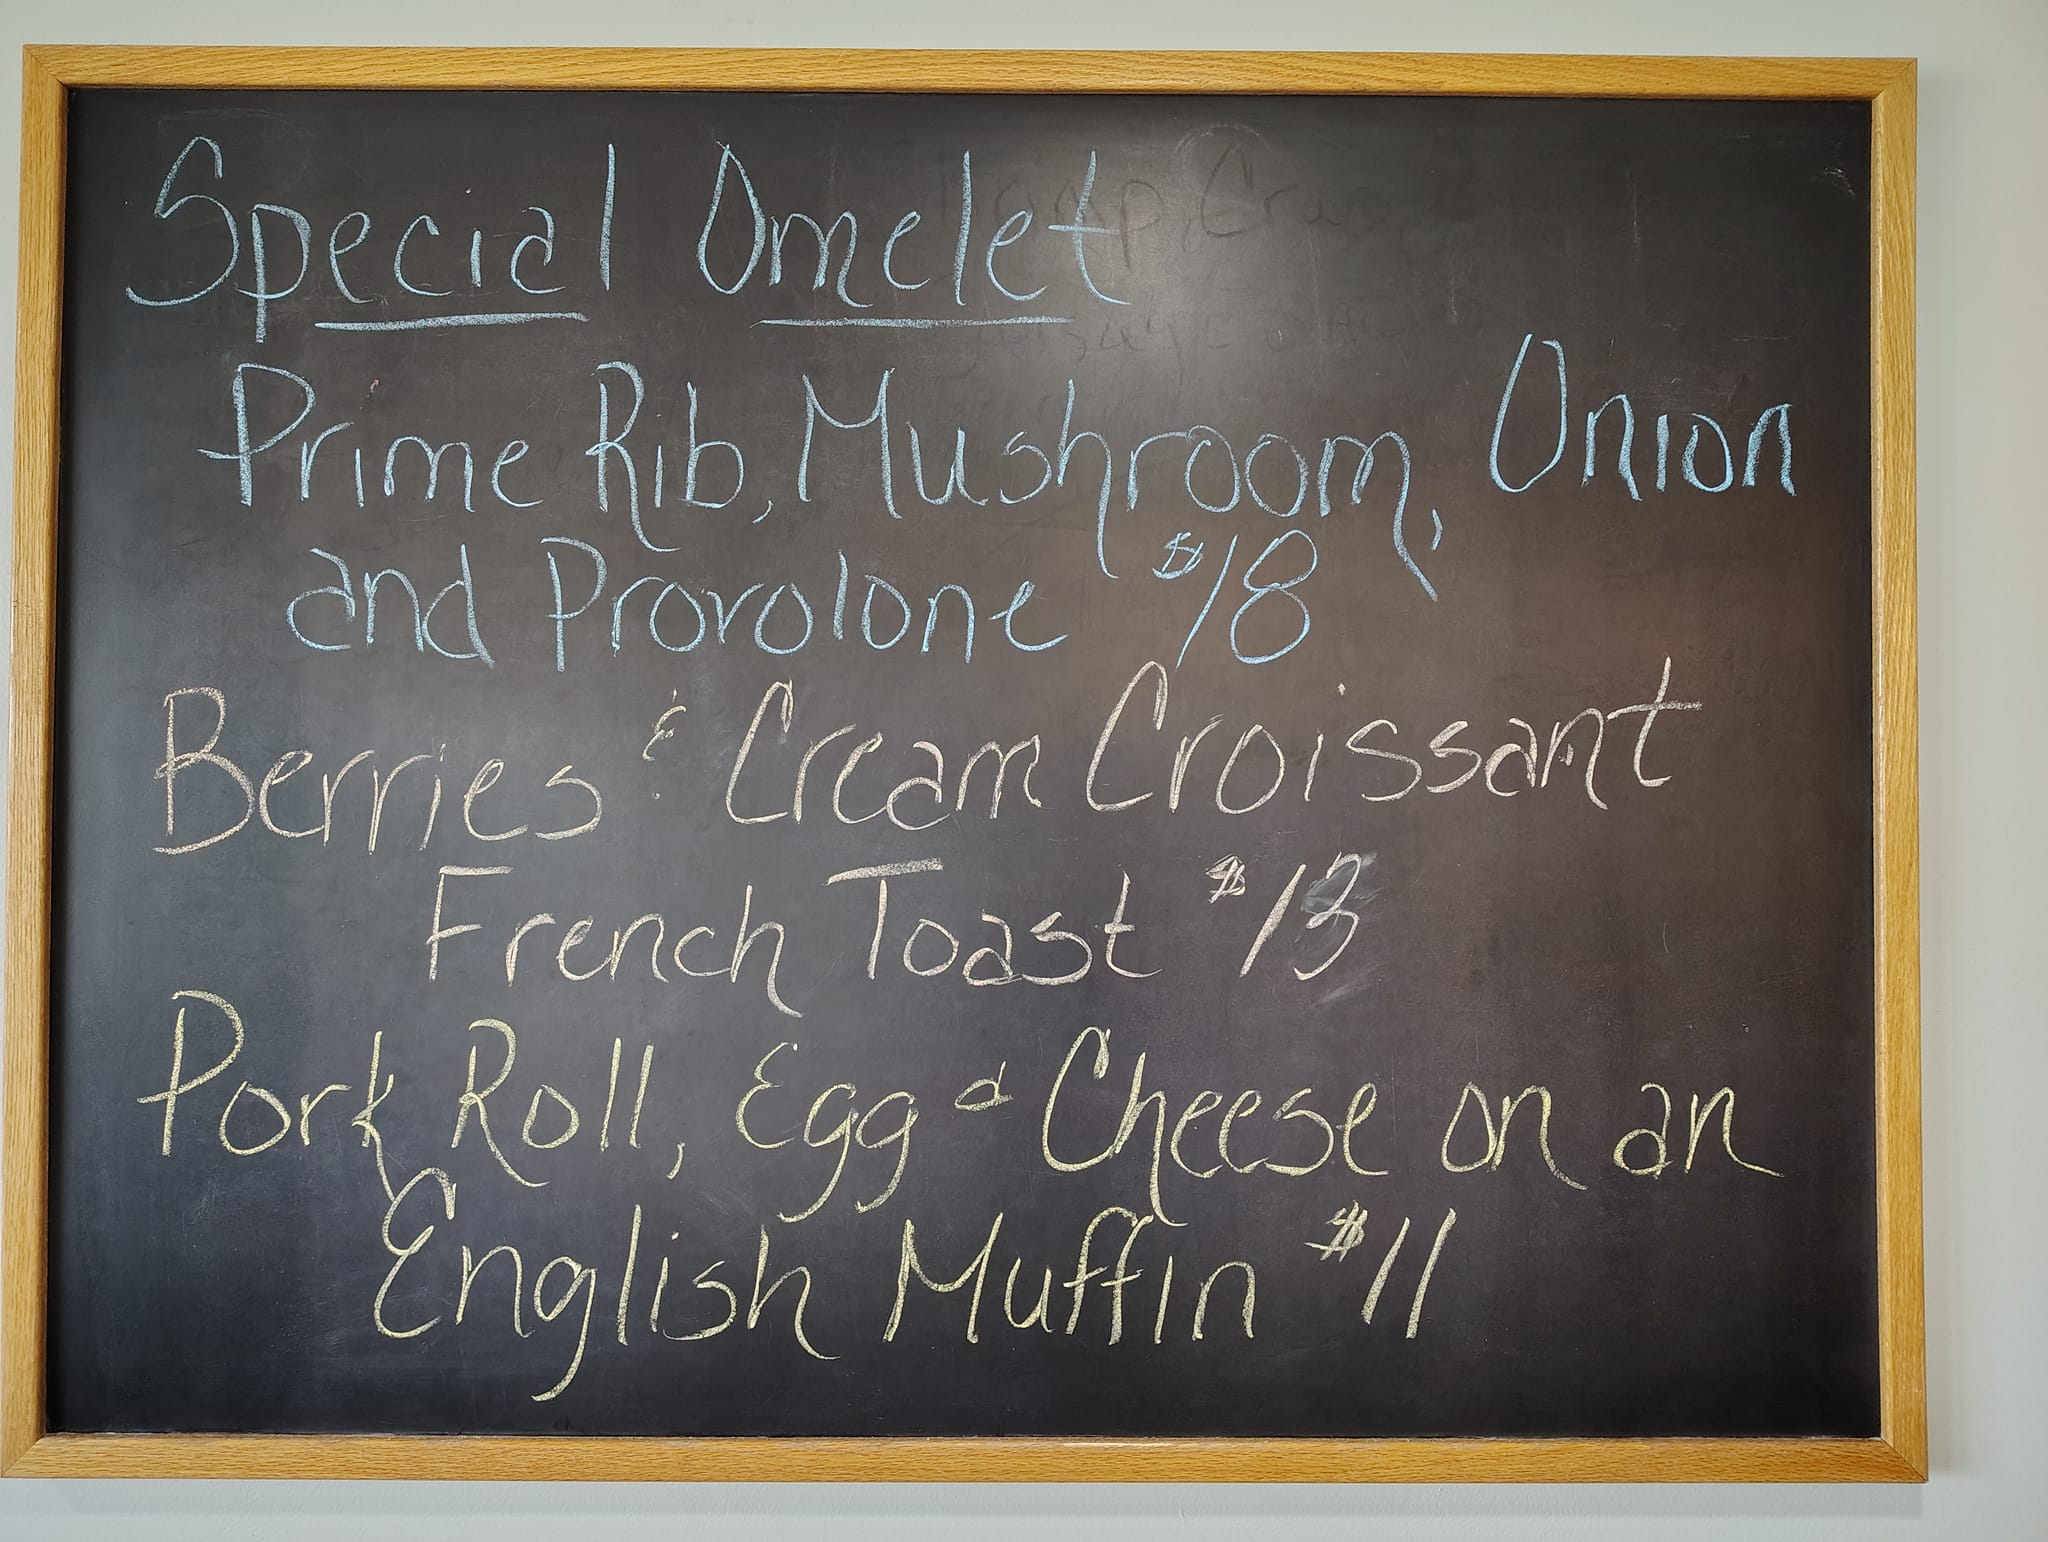 Special Omelet
Prime Rib, Mushroom, Onion
and Provolone $18
Berries & Cream Croissant
French Toast $13
Pork Roll, Egg & Cheese on an
English Muffin $11